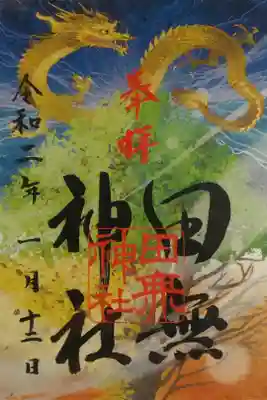 奉拝
田無
神社
田無
神社
令和二年 一月十二日